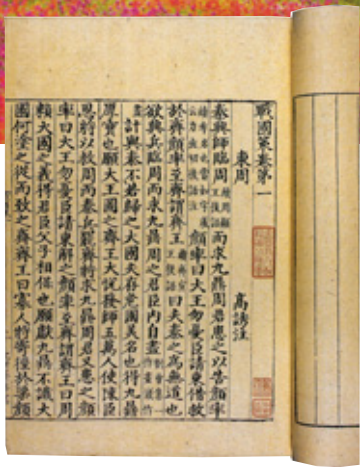 戰國策卷第一
東周 高誘注
秦興師臨周而求九鼎周君患之以告顏率
顏率曰大王勿憂臣請東借救
於齊顏率至齊謂齊王曰夫秦之爲無道也
欲興兵臨周而求九鼎周之君臣內自盡
計與秦不若歸之大國夫存危國美名也得九鼎
厚寶也願大王圖之齊王大悅發師五萬人使陳臣
思將以救周而秦兵罷齊將求九鼎周君又患之顏
率曰大王勿憂臣請東解之顏率至齊謂齊王曰周
賴大國之義得君臣父子相保也願獻九鼎不識大
國何塗之從而致之齊齊王曰寡人將寄徑於梁顏